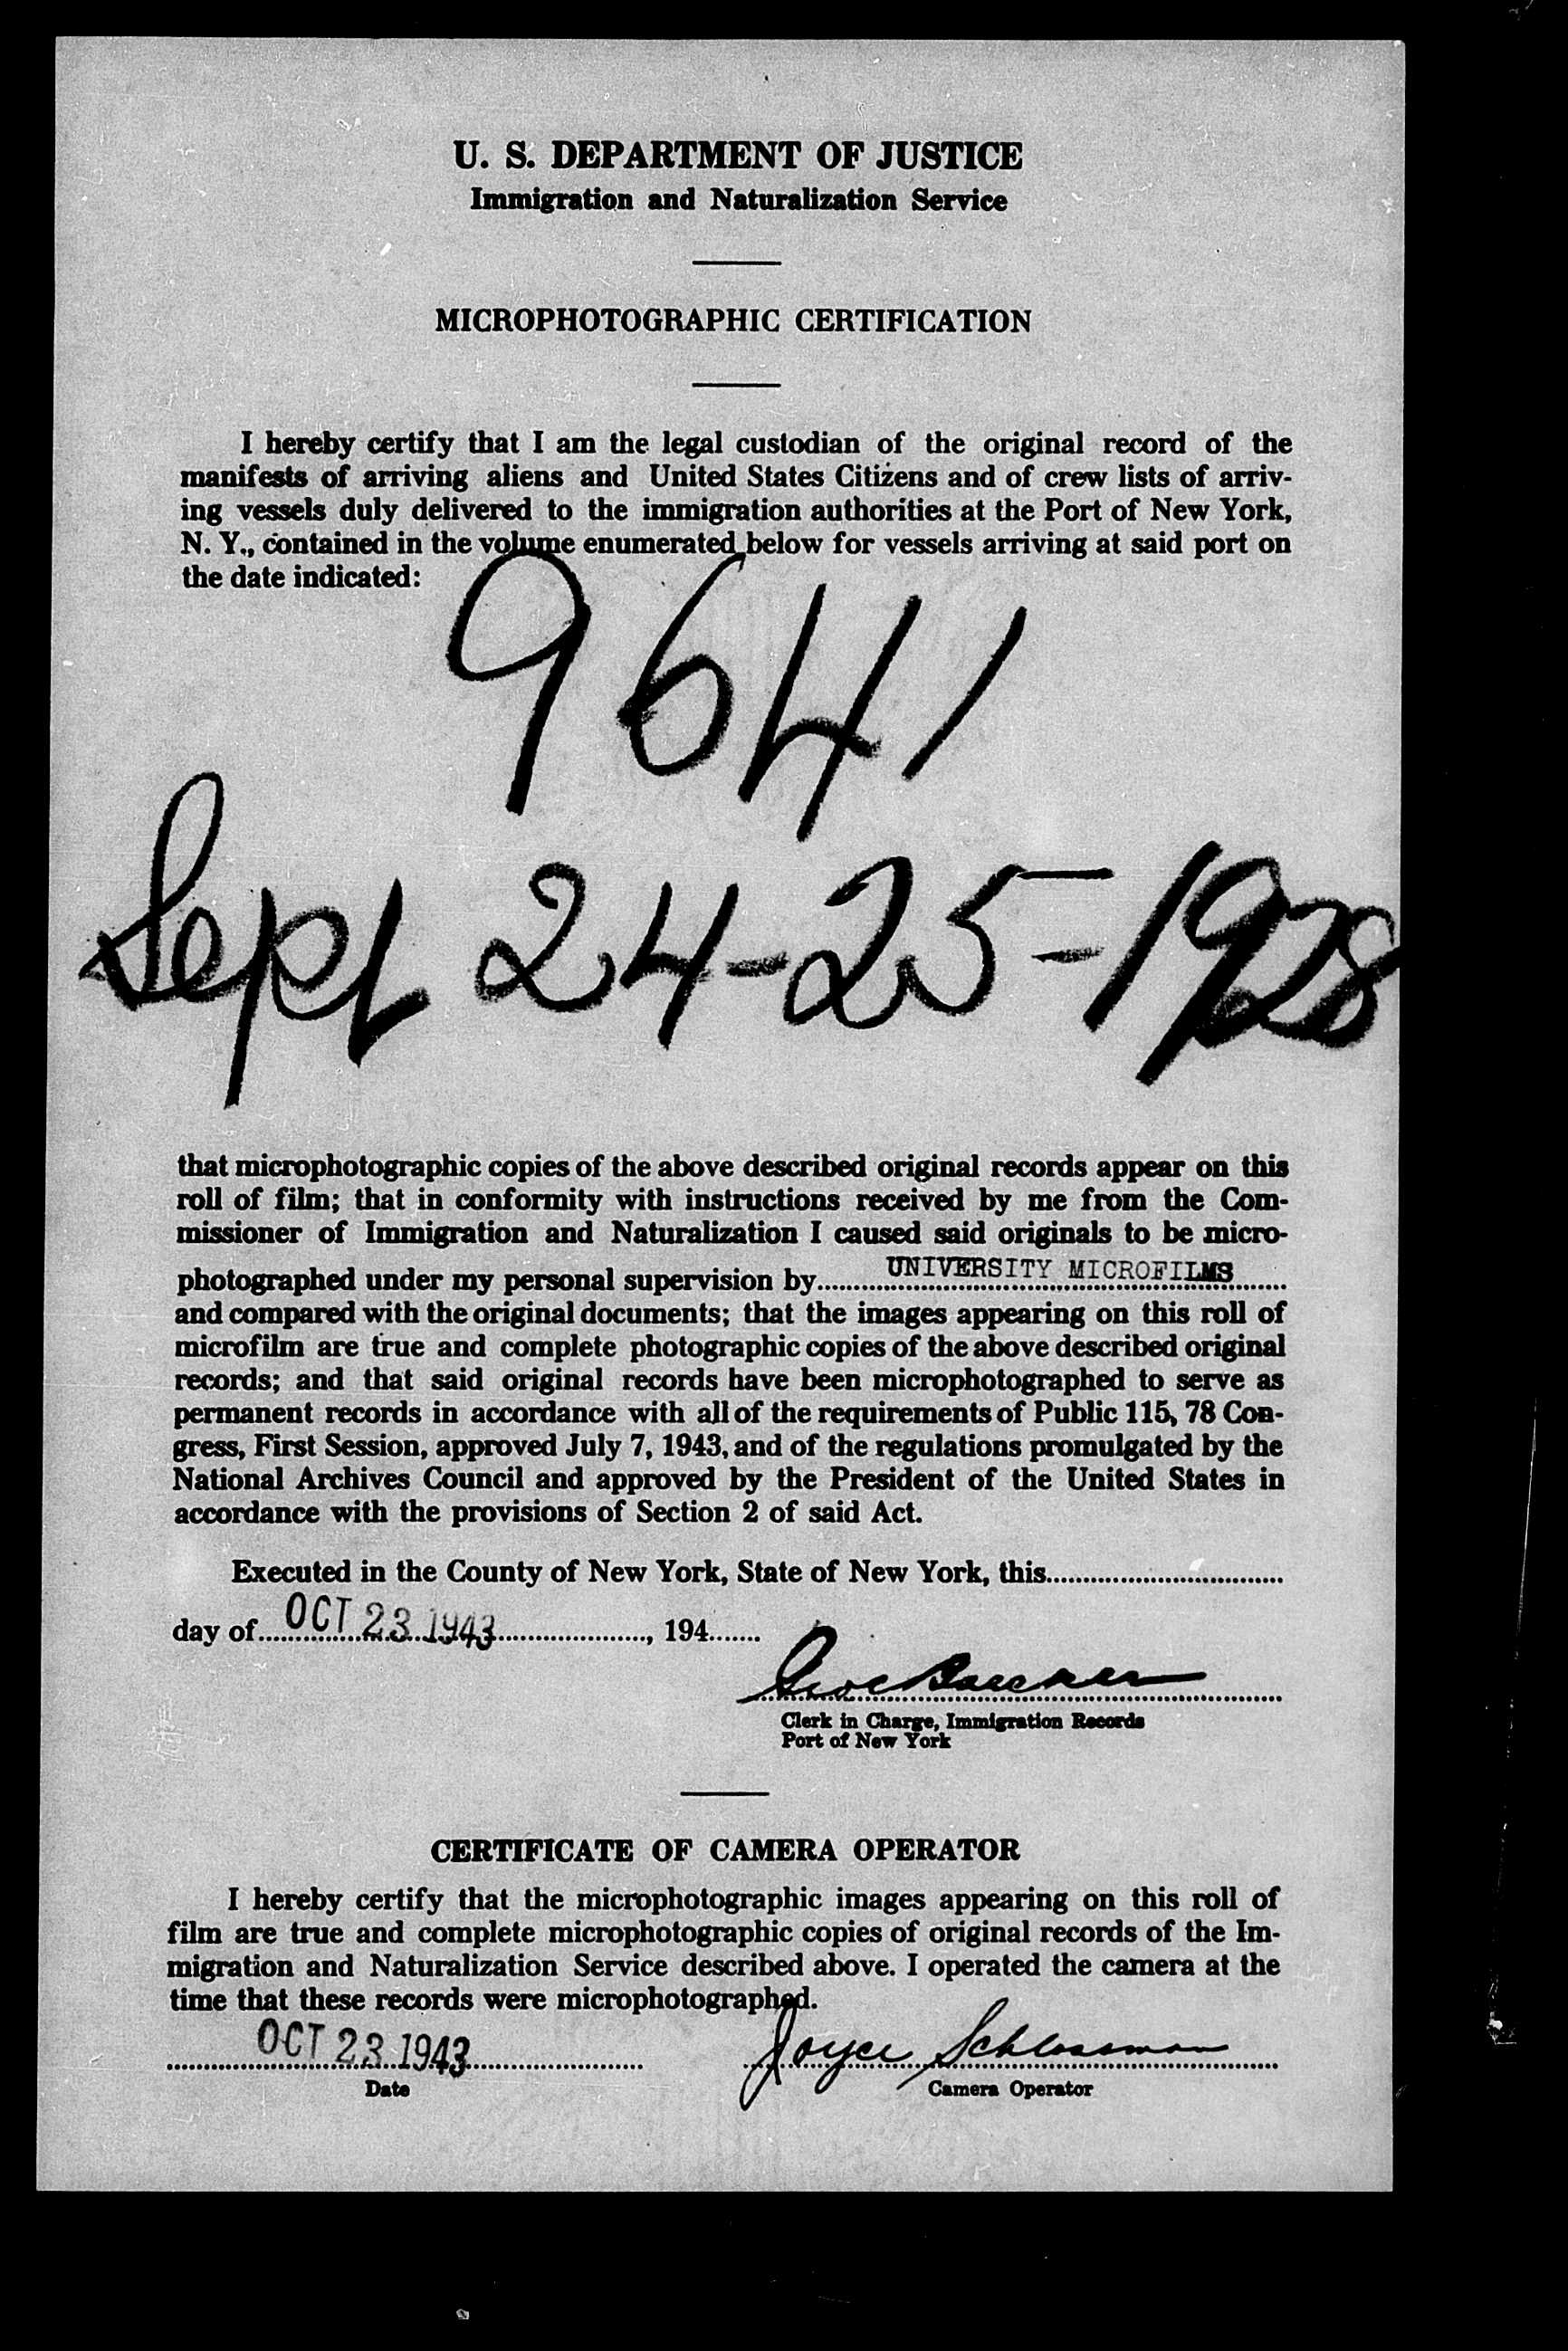 U. S. DEPARTMENT OF JUSTICE
Immigration and Naturalization Service
MICROPHOTOGRAPHIC CERTIFICATION
I hereby certify that I am the legal custodian of the original record of the
manifests of arriving aliens and United States Citizens and of crew lists of arriv-
ing vessels duly delivered to the immigration authorities at the Port of New York,
N. Y., contained in the volume enumerated below for vessels arriving at said port on
the date indicated:
9641
Sept 24-25-1928
that microphotographic copies of the above described original records appear on this
roll of film; that in conformity with instructions received by me from the Com-
missioner of Immigration and Naturalization I caused said originals to be micro-
photographed under my personal supervision by UNIVERSITY MICROFILMS
and compared with the original documents; that the images appearing on this roll of
microfilm are true and complete photographic copies of the above described original
records; and that said original records have been microphotographed to serve as
permanent records in accordance with all of the requirements of Public 115, 78 Con-
gress, First Session, approved July 7, 1943, and of the regulations promulgated by the
National Archives Council and approved by the President of the United States in
accordance with the provisions of Section 2 of said Act.
Executed in the County of New York, State of New York, this
day of OCT 23 1943, 194
Clerk in Charge, Immigration Records
Port of New York
CERTIFICATE OF CAMERA OPERATOR
I hereby certify that the microphotographic images appearing on this roll of
film are true and complete microphotographic copies of original records of the Im-
migration and Naturalization Service described above. I operated the camera at the
time that these records were microphotographed.
OCT 23 1943 Joyce Schlossman
Date Camera Operator